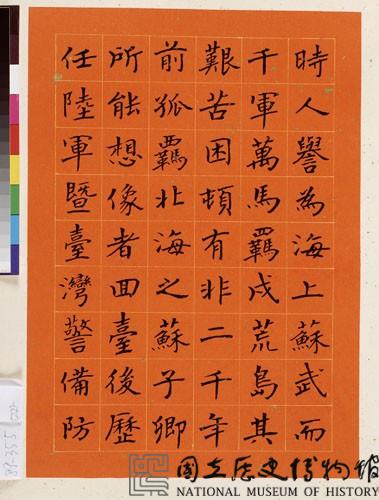 時人譽為海上蘇武而
千軍萬馬羈戍荒島其
艱苦困頓有非二千年
前孤羈北海之蘇子卿
所能想像者回臺後歷
任陸軍暨臺灣警備防
國立歷史博物館
NATIONAL MUSEUM OF HISTORY